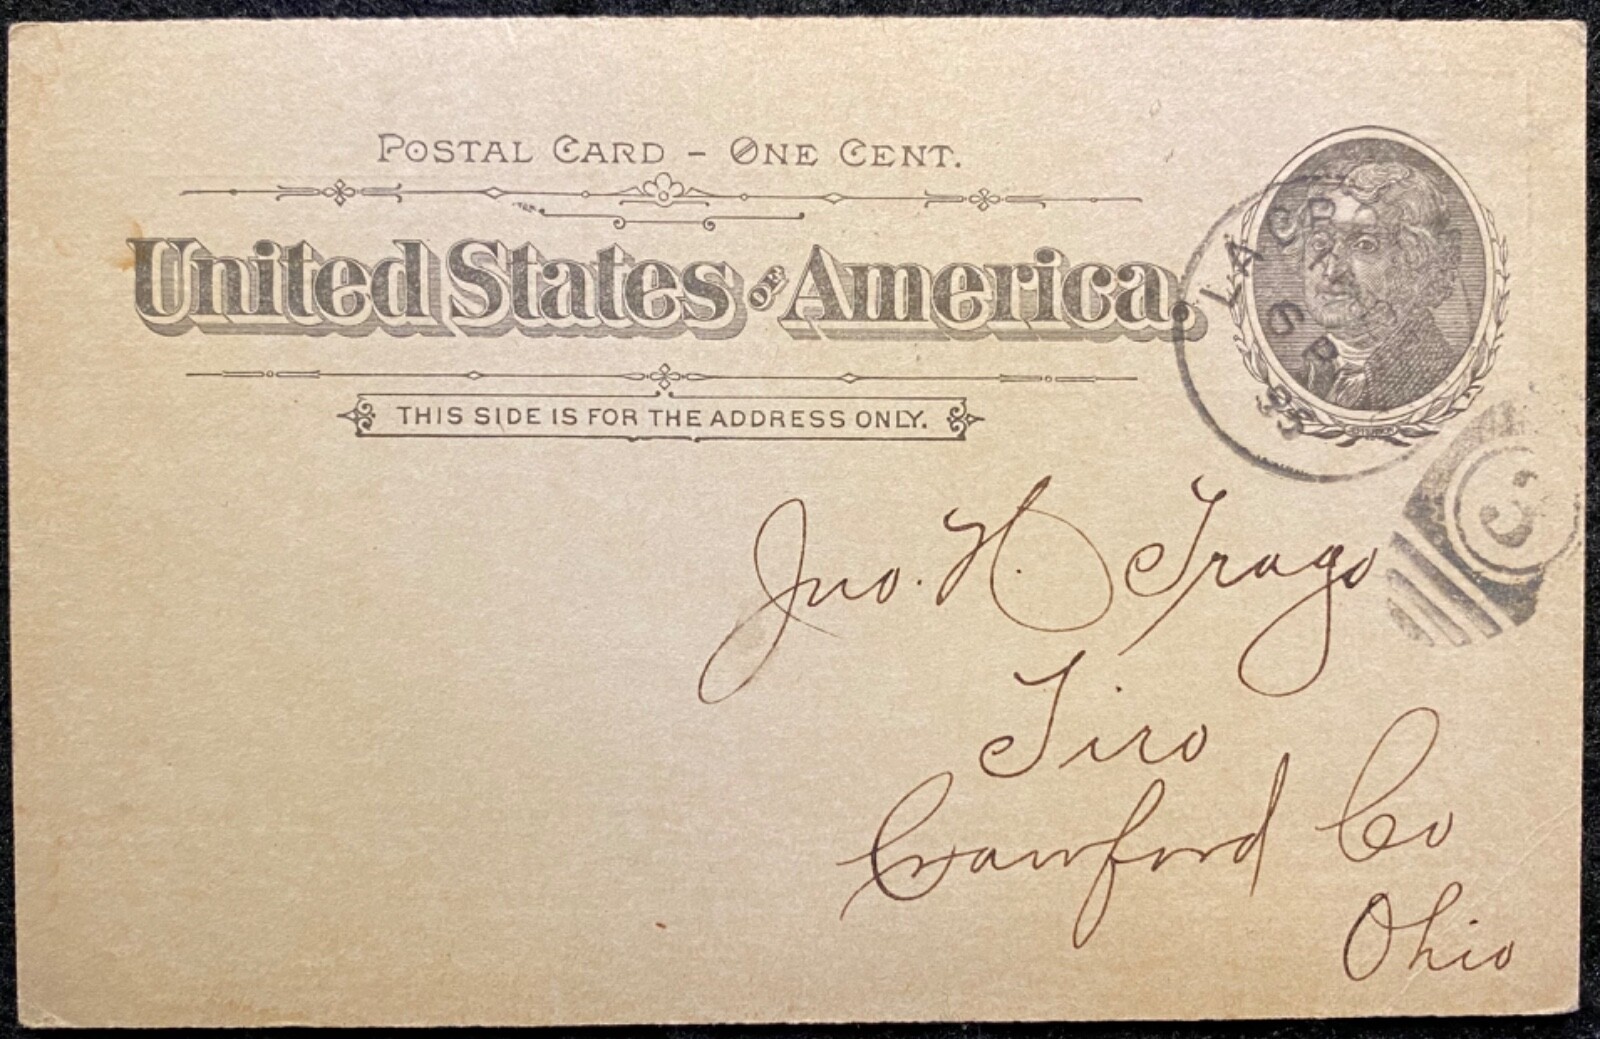 POSTAL CARD - ONE CENT.
United States OF America.
THIS SIDE IS FOR THE ADDRESS ONLY.
LA
6
Jno. H. Trago
Tiro
Crawford Co
Ohio